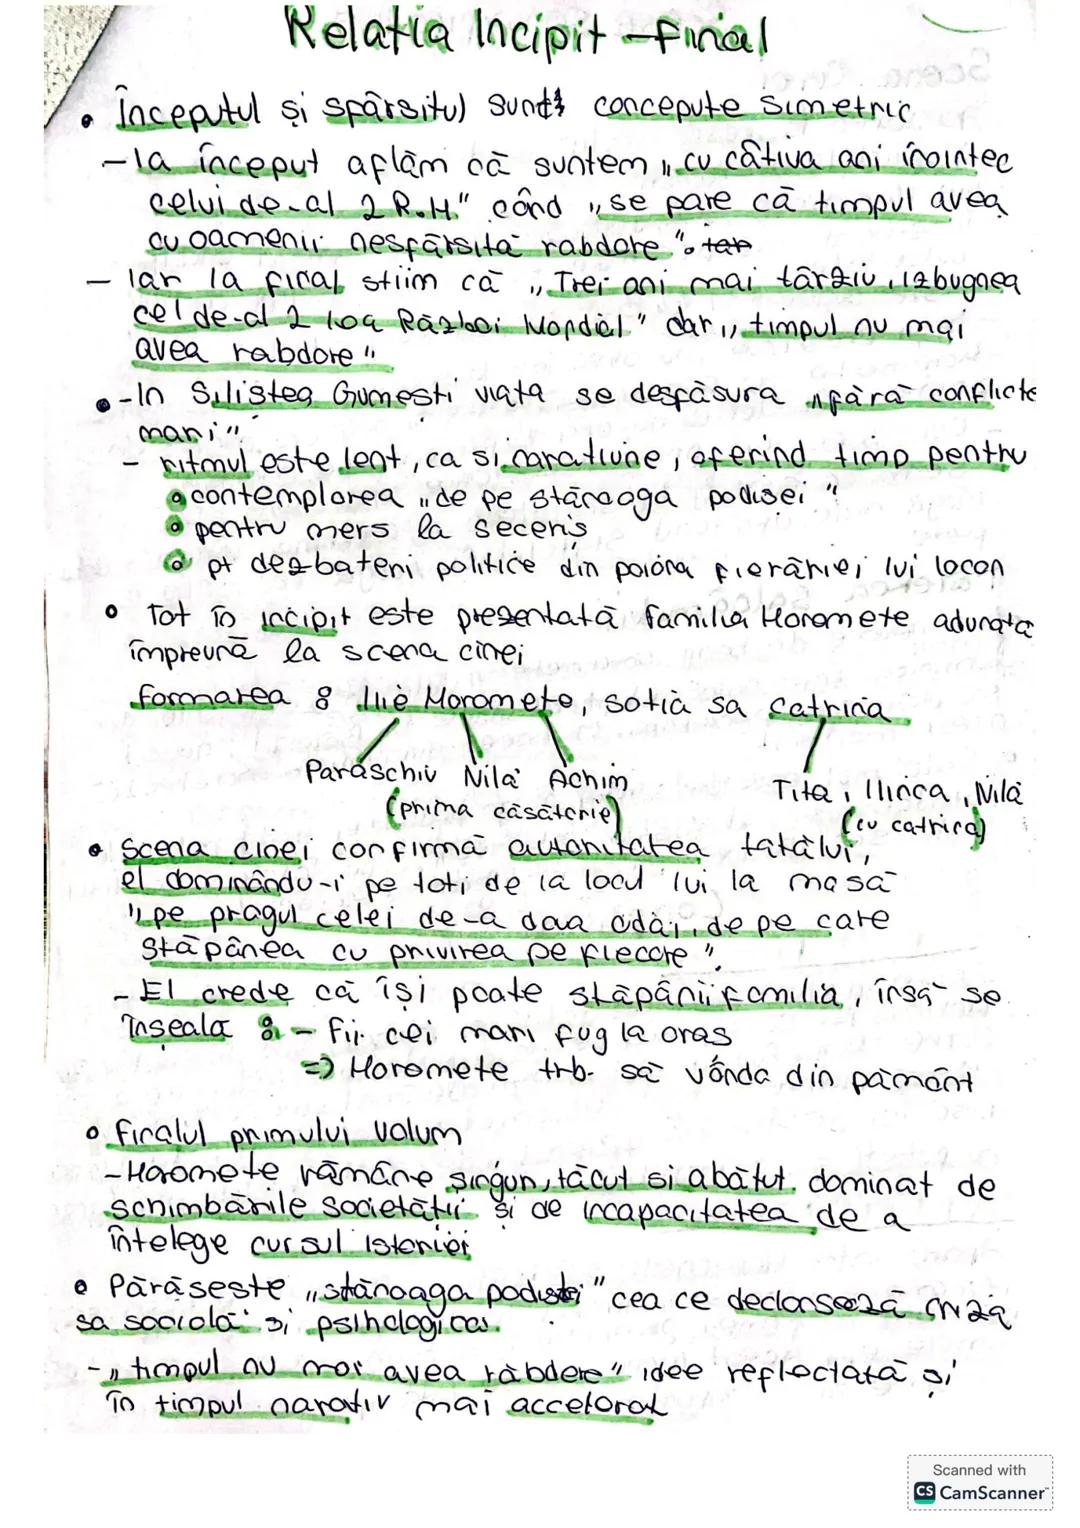 Relatia Incipit - Final
• Începutul și spârsitul sunt concepute simetric
- la început aflăm că suntem „cu câtiva ani înointec
celui de-al 2 R.M." când „se pare că timpul avea
cu oamenii nesfârsită rabdare". iar
- Iar la final stiim că „Trei ani mai târziu, izbugnea
cel de-al 2 lea Război Mondial" dar „timpul nu mai
avea rabdore"
• - In Silistea Gumesti viata se despăsura „fără conflicte
mari"
- ritmul este lent, ca si naratiune, oferind timp pentru
• contemplarea „de pe stănoaga podisei"
• pentru mers la seceris
• pt dezbateri politice din poiana fierăriei lui Iocan
• Tot în incipit este prezentată familia Moromete adunata
împreună la scena cinei
formarea : Ilie Moromete, sotia sa Catrina
Paraschiv Nilă Achim
Tita, Ilinca, Nilă
(prima căsătorie)
(cu catrina)
• Scena cinei confirmă autoritatea tatălui,
el dominându-i pe toti de la locul lui la masă
„pe pragul celei de-a daa odăi, de pe care
stăpânea cu privirea pe fiecare".
- El crede că își poate stăpânii familia, însă se
înseală : - Fii cei mari fug la oras
=> Moromete trb. să vândă din pământ
• Finalul primului volum
- Moromete rămâne singur, tăcut si abătut, dominat de
schimbările societății și de incapacitatea de a
întelege cursul istoriei
• Părăseste „stănoaga podistei" cea ce declansează criza
sa socială și psihologica.
- „timpul nu mai avea răbdare" idee reflectată și
în timpul narativ mai accelorat
Scanned with
CS CamScanner